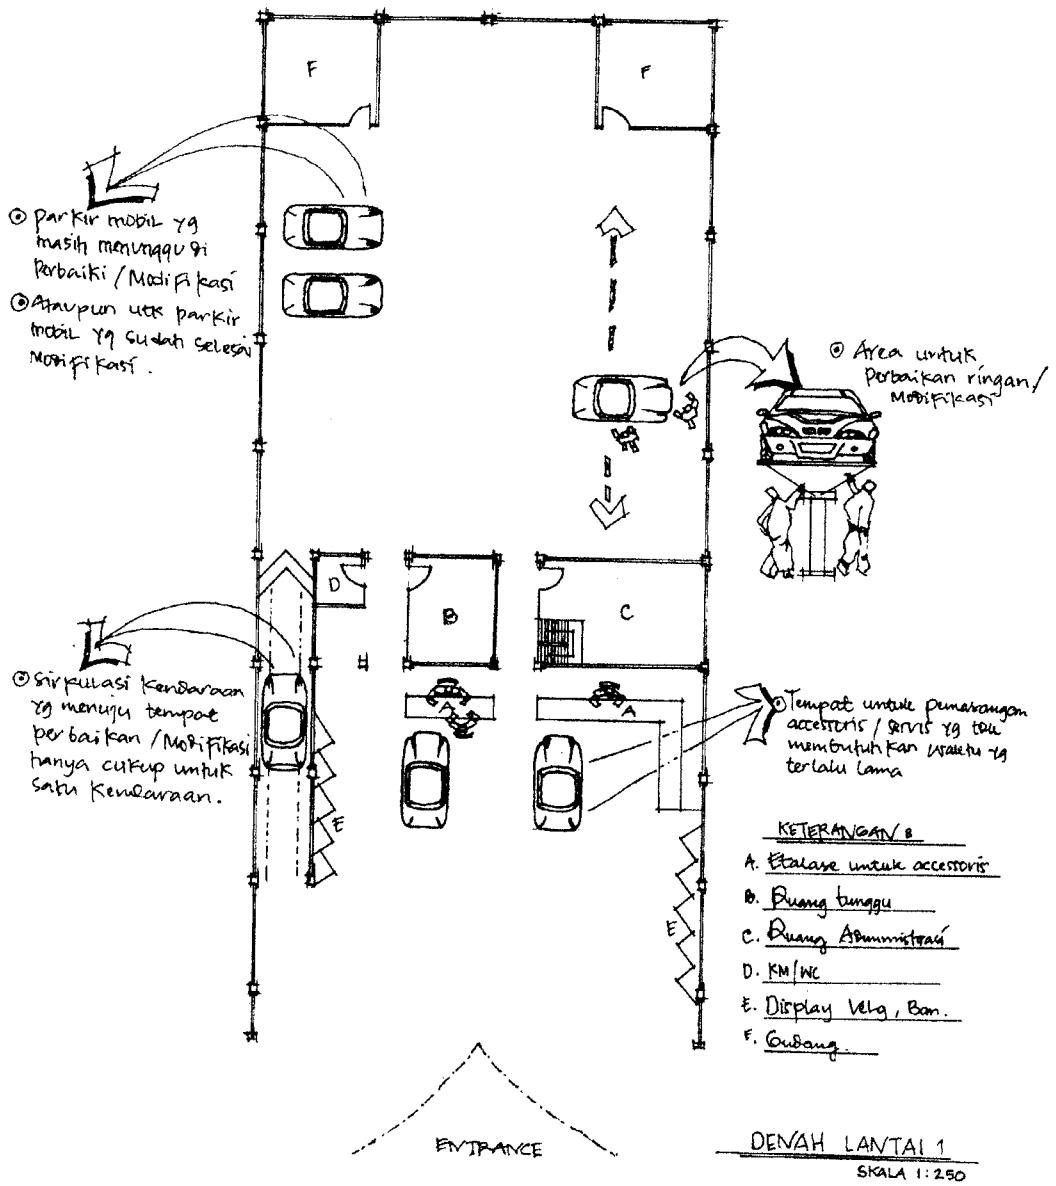 F
F
parkir mobil yg
masih menunggu di
perbaiki / Modifikasi
Ataupun utk parkir
mobil yg sudah selesai
Modifikasi.
Area untuk
perbaikan ringan/
Modifikasi
D
B
C
Sirkulasi kendaraan
yg menuju tempat
perbaikan / Modifikasi
hanya cukup untuk
satu kendaraan.
A
A
Tempat untuk pemasangan
accessoris / servis yg tdk
membutuhkan waktu yg
terlalu lama
E
E
KETERANGAN :
A. Etalase untuk accessoris
B. Ruang tunggu
C. Ruang Administrasi
D. KM/WC
E. Display Velg, Ban.
F. Gudang.
ENTRANCE
DENAH LANTAI 1
SKALA 1:250